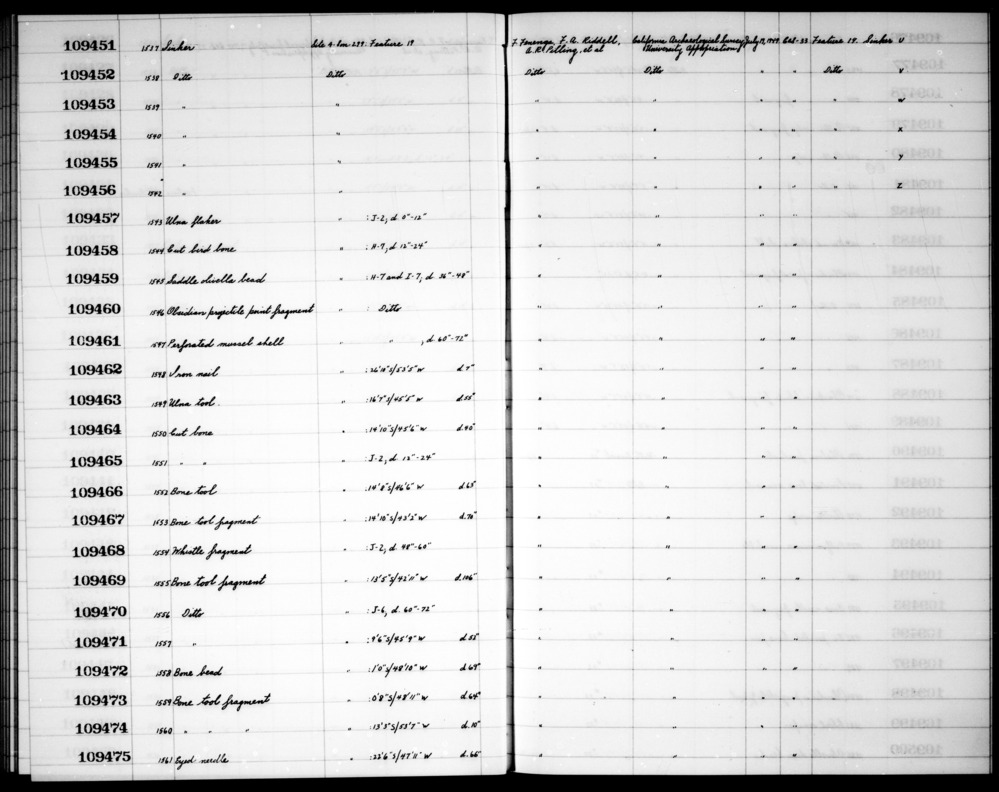 109451 1537 Sinker Site 4-Son-299: Feature 19 F. Fenenga, F. A. Riddell, California Archaeological Survey July 19, 1949 Cat-33 Feature 19. Sinker U
A. R. Pilling, et al University Appropriation
109452 1538 Ditto Ditto Ditto Ditto " " Ditto V
109453 1539 " " " " " " " W
109454 1540 " " " " " " " X
109455 1541 " " " " " " " Y
109456 1542 " " " " " " " Z
109457 1543 Ulna flaker " : J-2, d 0"-12" " " " "
109458 1544 Cut bird bone " : H-7, d 12"-24" " " " "
109459 1545 Saddle olivella bead " : H-7 and I-7, d 36"-48" " " " "
109460 1546 Obsidian projectile point fragment " : Ditto " " " "
109461 1547 Perforated mussel shell " " , d 60"-72" " " " "
109462 1548 Iron nail " : 5'5" W d. 7" " " " "
109463 1549 Ulna tool " : 16'7" S/45'5" W d. 55" " " " "
109464 1550 Cut bone " : 14'10" S/45'6" W d. 40" " " " "
109465 1551 " " " : J-2, d 12"-24" " " " "
109466 1552 Bone tool " : 14'8" S/46'6" W d. 65" " " " "
109467 1553 Bone tool fragment " : 14'10" S/43'2" W d. 70" " " " "
109468 1554 Whistle fragment " : J-2, d 48"-60" " " " "
109469 1555 Bone tool fragment " : 13'5" S/42'11" W d. 106" " " " "
109470 1556 Ditto " : J-6, d. 60"-72" " " " "
109471 1557 " " : 9'6" S/45'9" W d. 55" " " " "
109472 1558 Bone bead " : 1'0" S/48'10" W d. 69" " " " "
109473 1559 Bone tool fragment " : 0'8" S/48'11" W d. 64" " " " "
109474 1560 " " " " : 13'3" S/53'7" W d. 10" " " " "
109475 1561 Eyed needle " : 22'6" S/47'11" W d. 66" " " " "